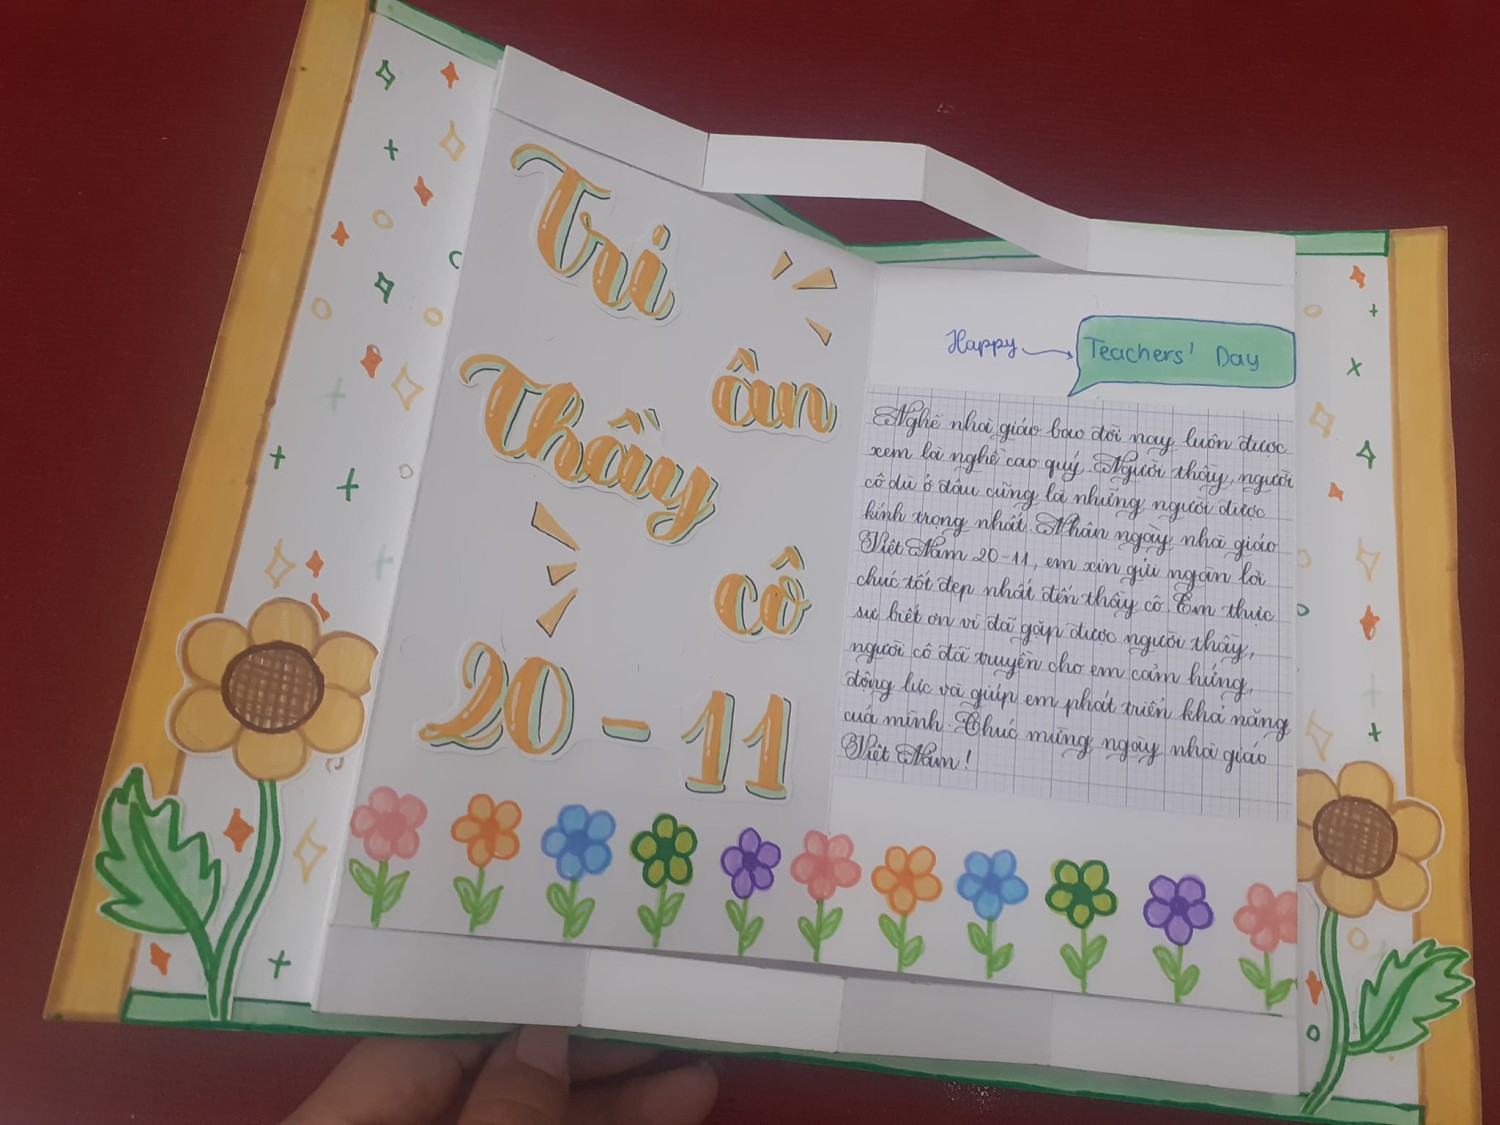 Tri
ân
Thầy
cô
20 - 11
Happy
Teachers' Day
Nghề nhà giáo bao đời nay luôn được
xem là nghề cao quý. Người thầy, người
cô dù ở đâu cũng là những người được
kính trọng nhất. Nhân ngày nhà giáo
Việt Nam 20-11, em xin gửi ngàn lời
chúc tốt đẹp nhất đến thầy cô. Em thực
sự biết ơn vì đã gặp được người thầy,
người cô đã truyền cho em cảm hứng,
động lực và giúp em phát triển khả năng
của mình. Chúc mừng ngày nhà giáo
Việt Nam!